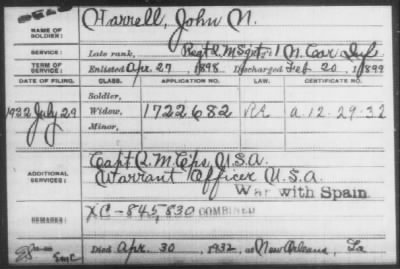 NAME OF SOLDIER: Harrell, John N.
SERVICE: Late rank, Regt Q.M. Sgt, 1 N. Car Inf.
TERM OF SERVICE: Enlisted Apr. 27, 1898, Discharged Feb 20, 1899
DATE OF FILING. CLASS. APPLICATION NO. LAW. CERTIFICATE NO.
Soldier,
1932 July 29 Widow, 1722682 a. 12-29-32
Minor,
Capt Q.M. Cps, U.S.A.
ADDITIONAL SERVICES: Warrant Officer U.S.A.
War with Spain
REMARKS: XC-845,830 COMBINED
Died Apr. 30, 1932, at New Orleans, La